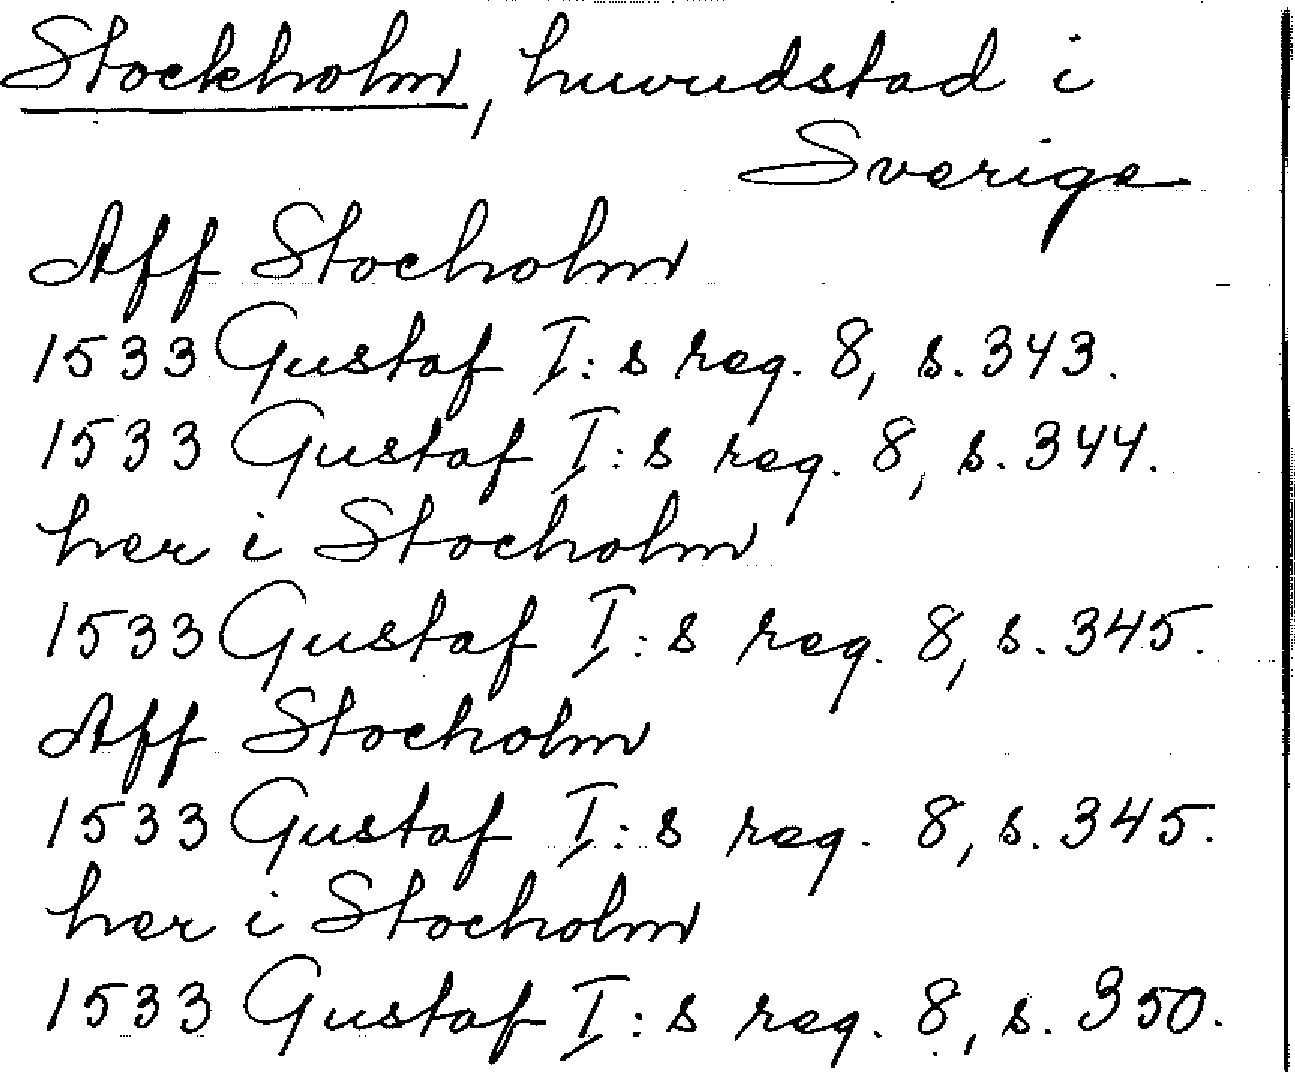 Stockholm, huvudstad i
Sverige
Aff Stocholm
1533 Gustaf I:s reg. 8, s. 343.
1533 Gustaf I:s reg. 8, s. 344.
her i Stocholm
1533 Gustaf I:s reg. 8, s. 345.
Aff Stocholm
1533 Gustaf I:s reg. 8, s. 345.
her i Stocholm
1533 Gustaf I:s reg. 8, s. 350.